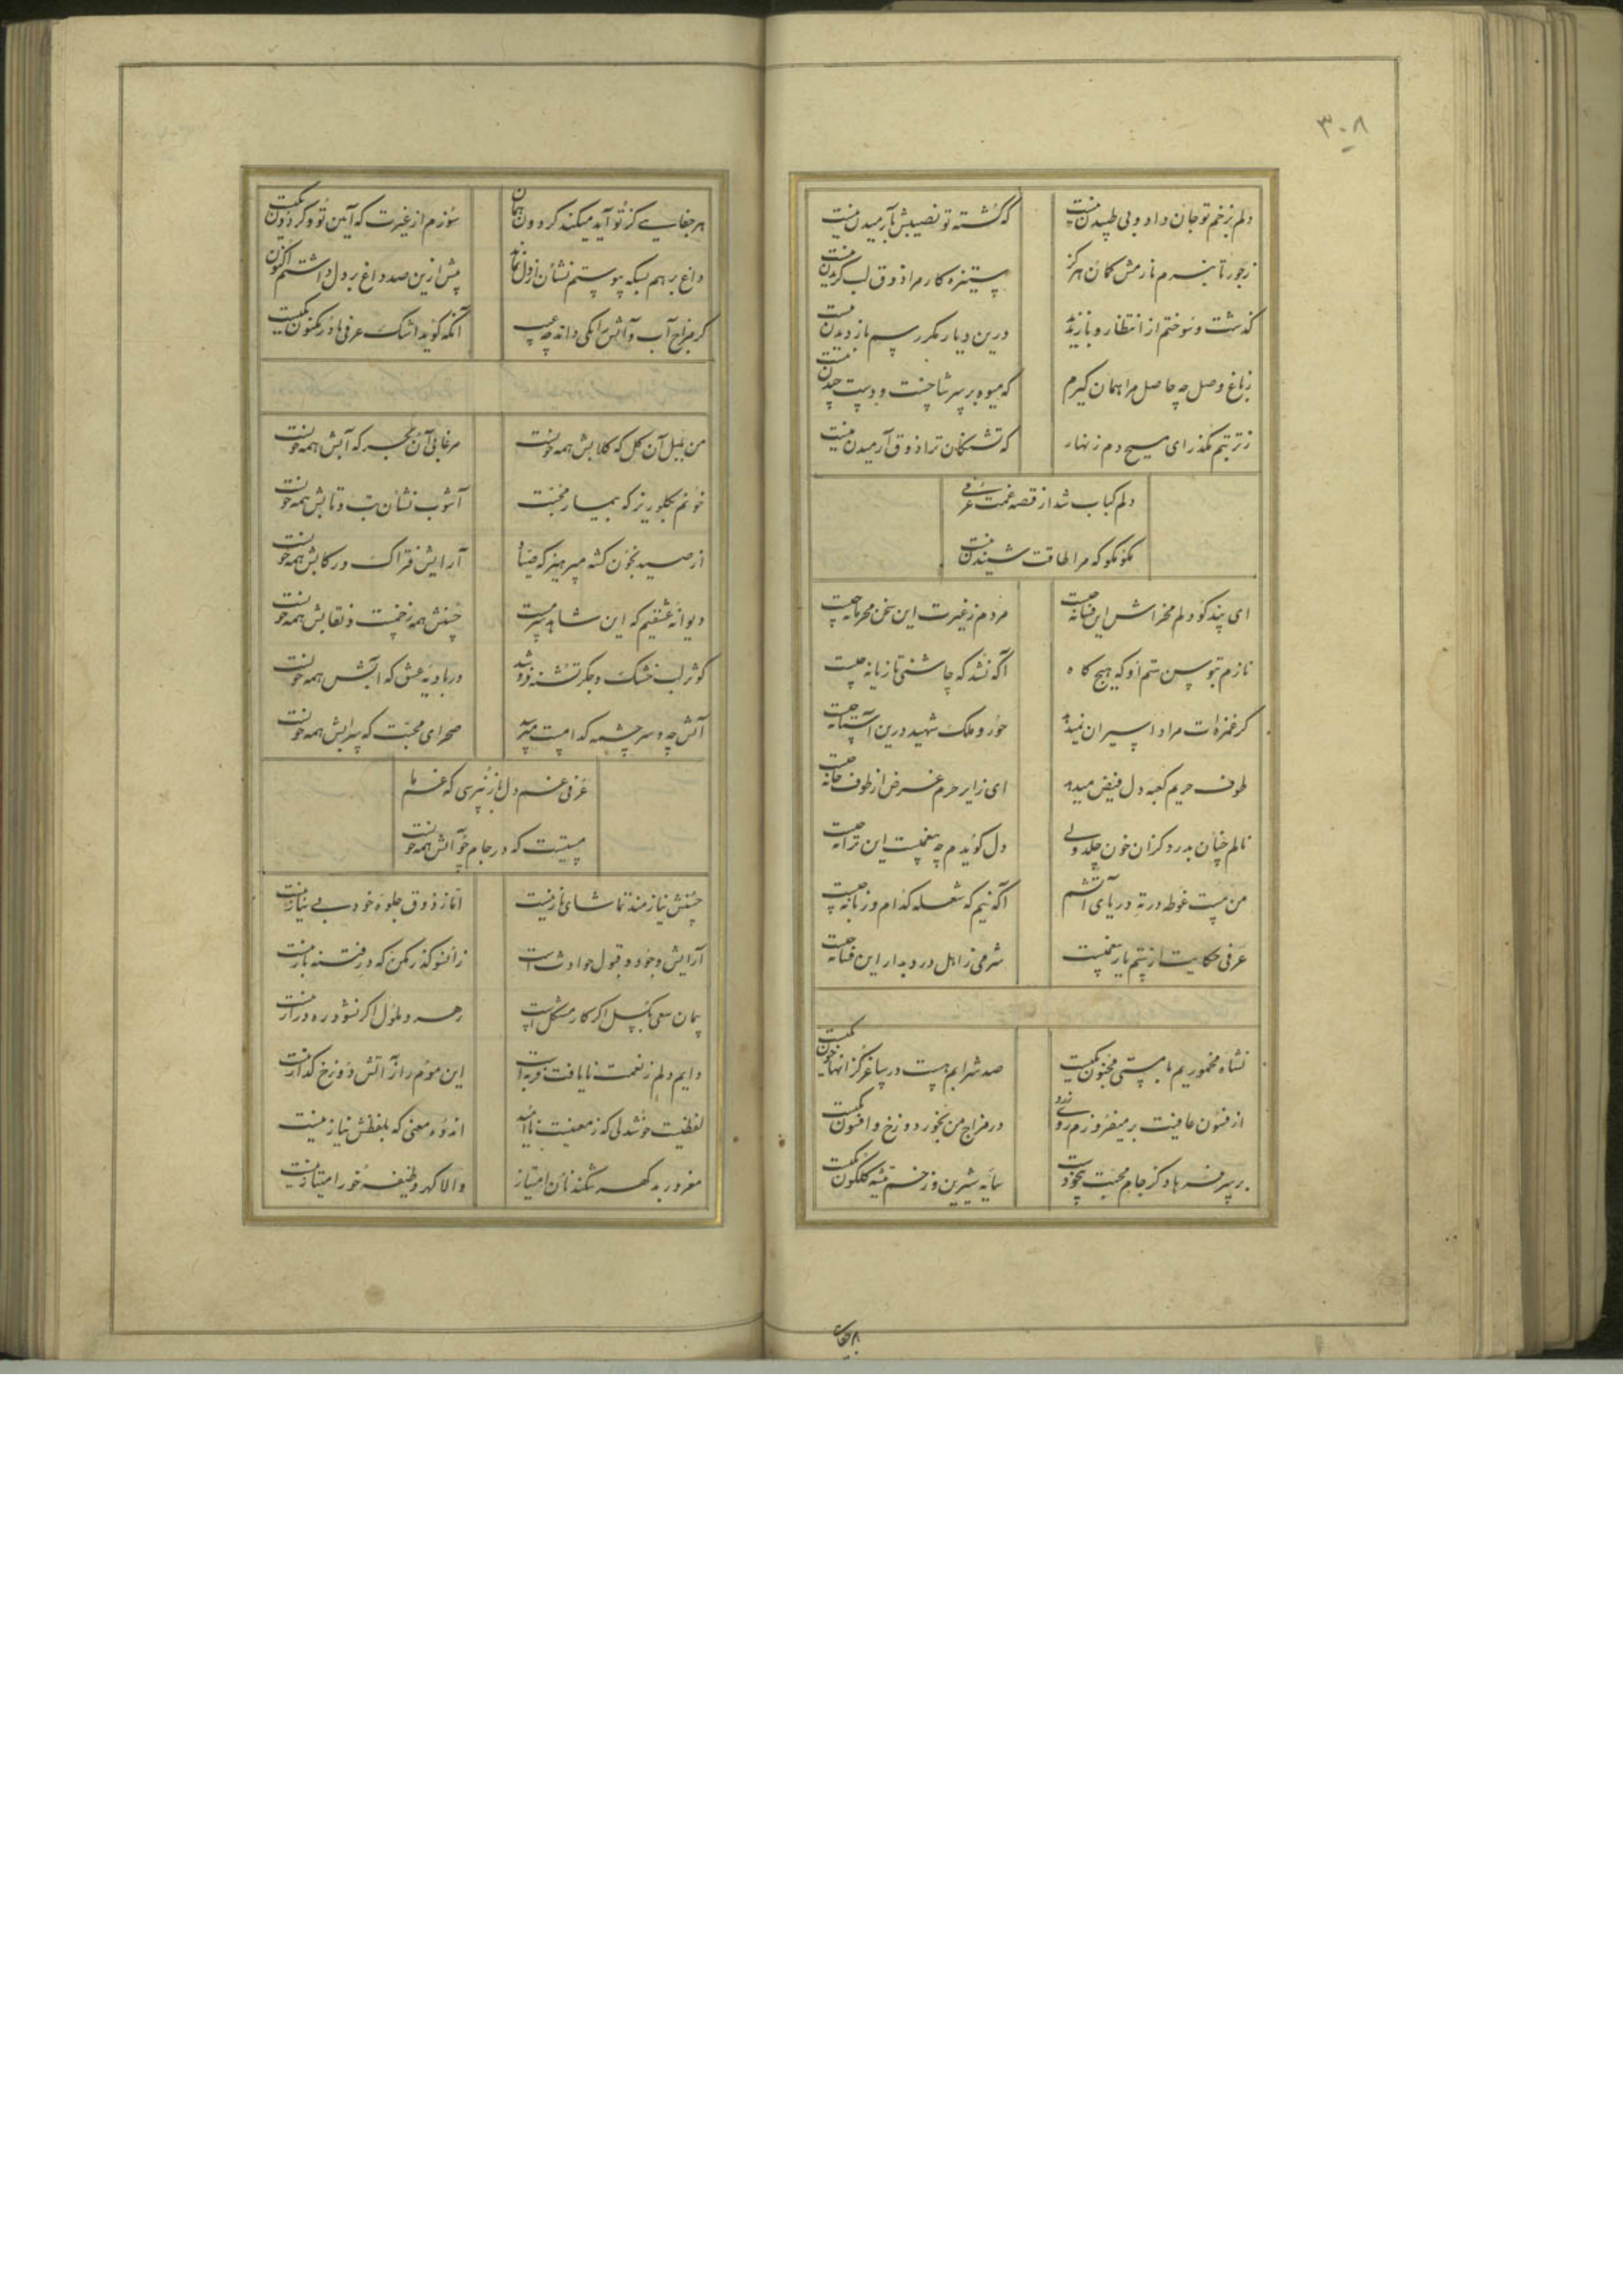 ۳۰۸
دلم بزخم تو جان داد و بی طپیدن نیست
که کشته تو نصیبش بآرمیدن نیست
ز جور تا نبرم نازمش کمان هرگز
ستیزه کار مرا ذوق لب گزیدن نیست
گذشت و سوختم از انتظار و باز ندید
درین دیار مگر رسم باز دیدن نیست
ز باغ وصل چه حاصل مرا همان گیرم
که میوه بر سر شاخست و دست چیدن نیست
ز تربتم مگذر ای مسیح دم زنهار
که تشنگان ترا ذوق آرمیدن نیست
دلم کباب شد از قصه غمت عرفی
مگو مگو که مرا طاقت شنیدن نیست
ای پند گو دلم مخراش این فسانه چیست
مردم ز غیرت این سخن محرمانه چیست
نازم بتوسن ستم او که هیچ گاه
آگه نشد که چاشنی تازیانه چیست
گر غمزه‌ات مراد اسیران نمیدهد
حور و ملک شهید درین آستانه چیست
طوف حریم کعبه دل فیض میدهد
ای زایر حرم غرض از طوف خانه چیست
نالم چنان بدرد کزان خون چکد ولی
دل گویدم چه بیغمیست این ترانه چیست
من مست غوطه در ته دریای آتشم
آگه نیم که شعله کدام و زبانه چیست
عرفی حکایت از ستم یار بیغمیست
شرمی ز اهل درد بدار این فسانه چیست
نشاه مخموریم با مستی مجنون یکیست
صد شرابم هست در ساغر کز انها خون یکیست
از فسون عافیت بر میفروزم روی زرد
در مزاج من بخور دوزخ و افسون یکیست
بر سر فرهاد کز جام محبت بیخودست
سایه شیرین و زخم تیشه گلگون یکیست
هر جفای
هر جفایی کز تو آید میکند گردون همان
سوزم از غیرت که آیین تو و گردون یکیست
داغ بر هم بسکه پیوستم نشان از دل نماند
پیش ازین صد داغ بر دل داشتم اکنون یکیست
گر مزاج آب و آتش را یکی داند چه عیب
آنکه گوید اشک عرفی با در مکنون یکیست
من بلبل آن گل که گلابش همه خونست
مرغابی آن بحر که آبش همه خونست
خونم بگلو ریز که بیمار محبت
آشوب نشان تب و تابش همه خونست
از صید بخون گشته مپرهیز که صیاد
آرایش فتراک و رکابش همه خونست
دیوانه عشقیم که این شاهد سرمست
حسنش همه زخمست و نقابش همه خونست
کوثر لب خشک و جگر تشنه فروشد
در بادیه عشق که آبش همه خونست
آتش چه و سرچشمه کدامست مپرس
صحرای محبت که سرابش همه خونست
عرفی غم دل باز نپرسی که غم ما
مستیست که در جام چو آتش همه خونست
حسنش نیازمند تماشای ناز نیست
اما ز ذوق جلوه خود بی نیاز نیست
آرایش وجود و قبول حوادث است
زانسو گذر مکن که در فتنه باز نیست
پیمان سعی بگسل اگر کار مشکل است
رهرو ملول اگر نشود ره دراز نیست
دایم دلم ز نعمت نایافت فربه است
این موم را ز آتش دوزخ گداز نیست
لفظیست خوشدلی که ز معنیست بی‌نیاز
اندوه معنی که بلفظش نیاز نیست
مغرور بد گهر شکند نان امتیاز
والا گهر وظیفه خور امتیاز نیست